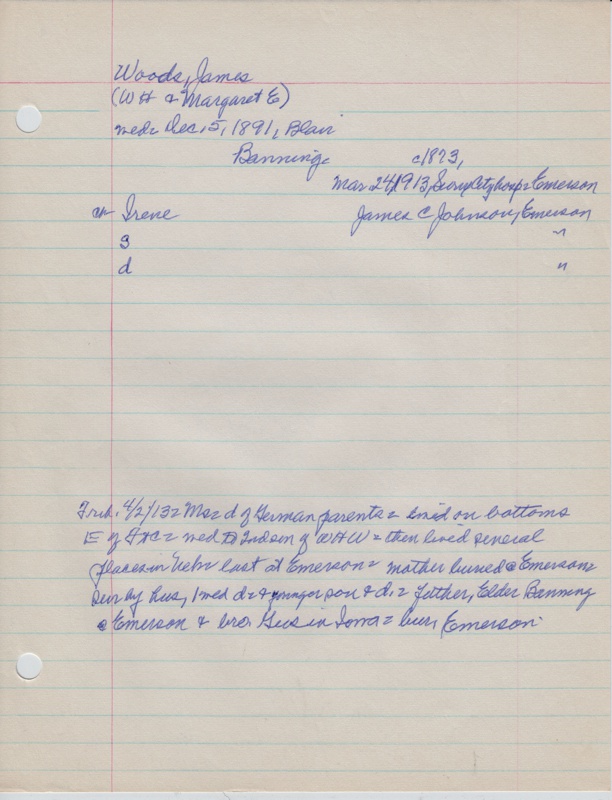 Woods, James
(WH & Margaret E)
med= Dec. 5, 1891, Blair
Banning= c1873,
Mar 24/1913, hosp= Emerson
ch Irene James C Johnson, Emerson
s "
d "
Trib. 4/2/13= d of German parents= lived on bottoms
E of = med 2nd son of WHW= then lived several
places in Nebr last at Emerson= mother buried @ Emerson=
Sur by hus, 1 med d= & younger son & d.= father, Elder Banning
@ Emerson & bro. Gus in Iowa= bur, Emerson.